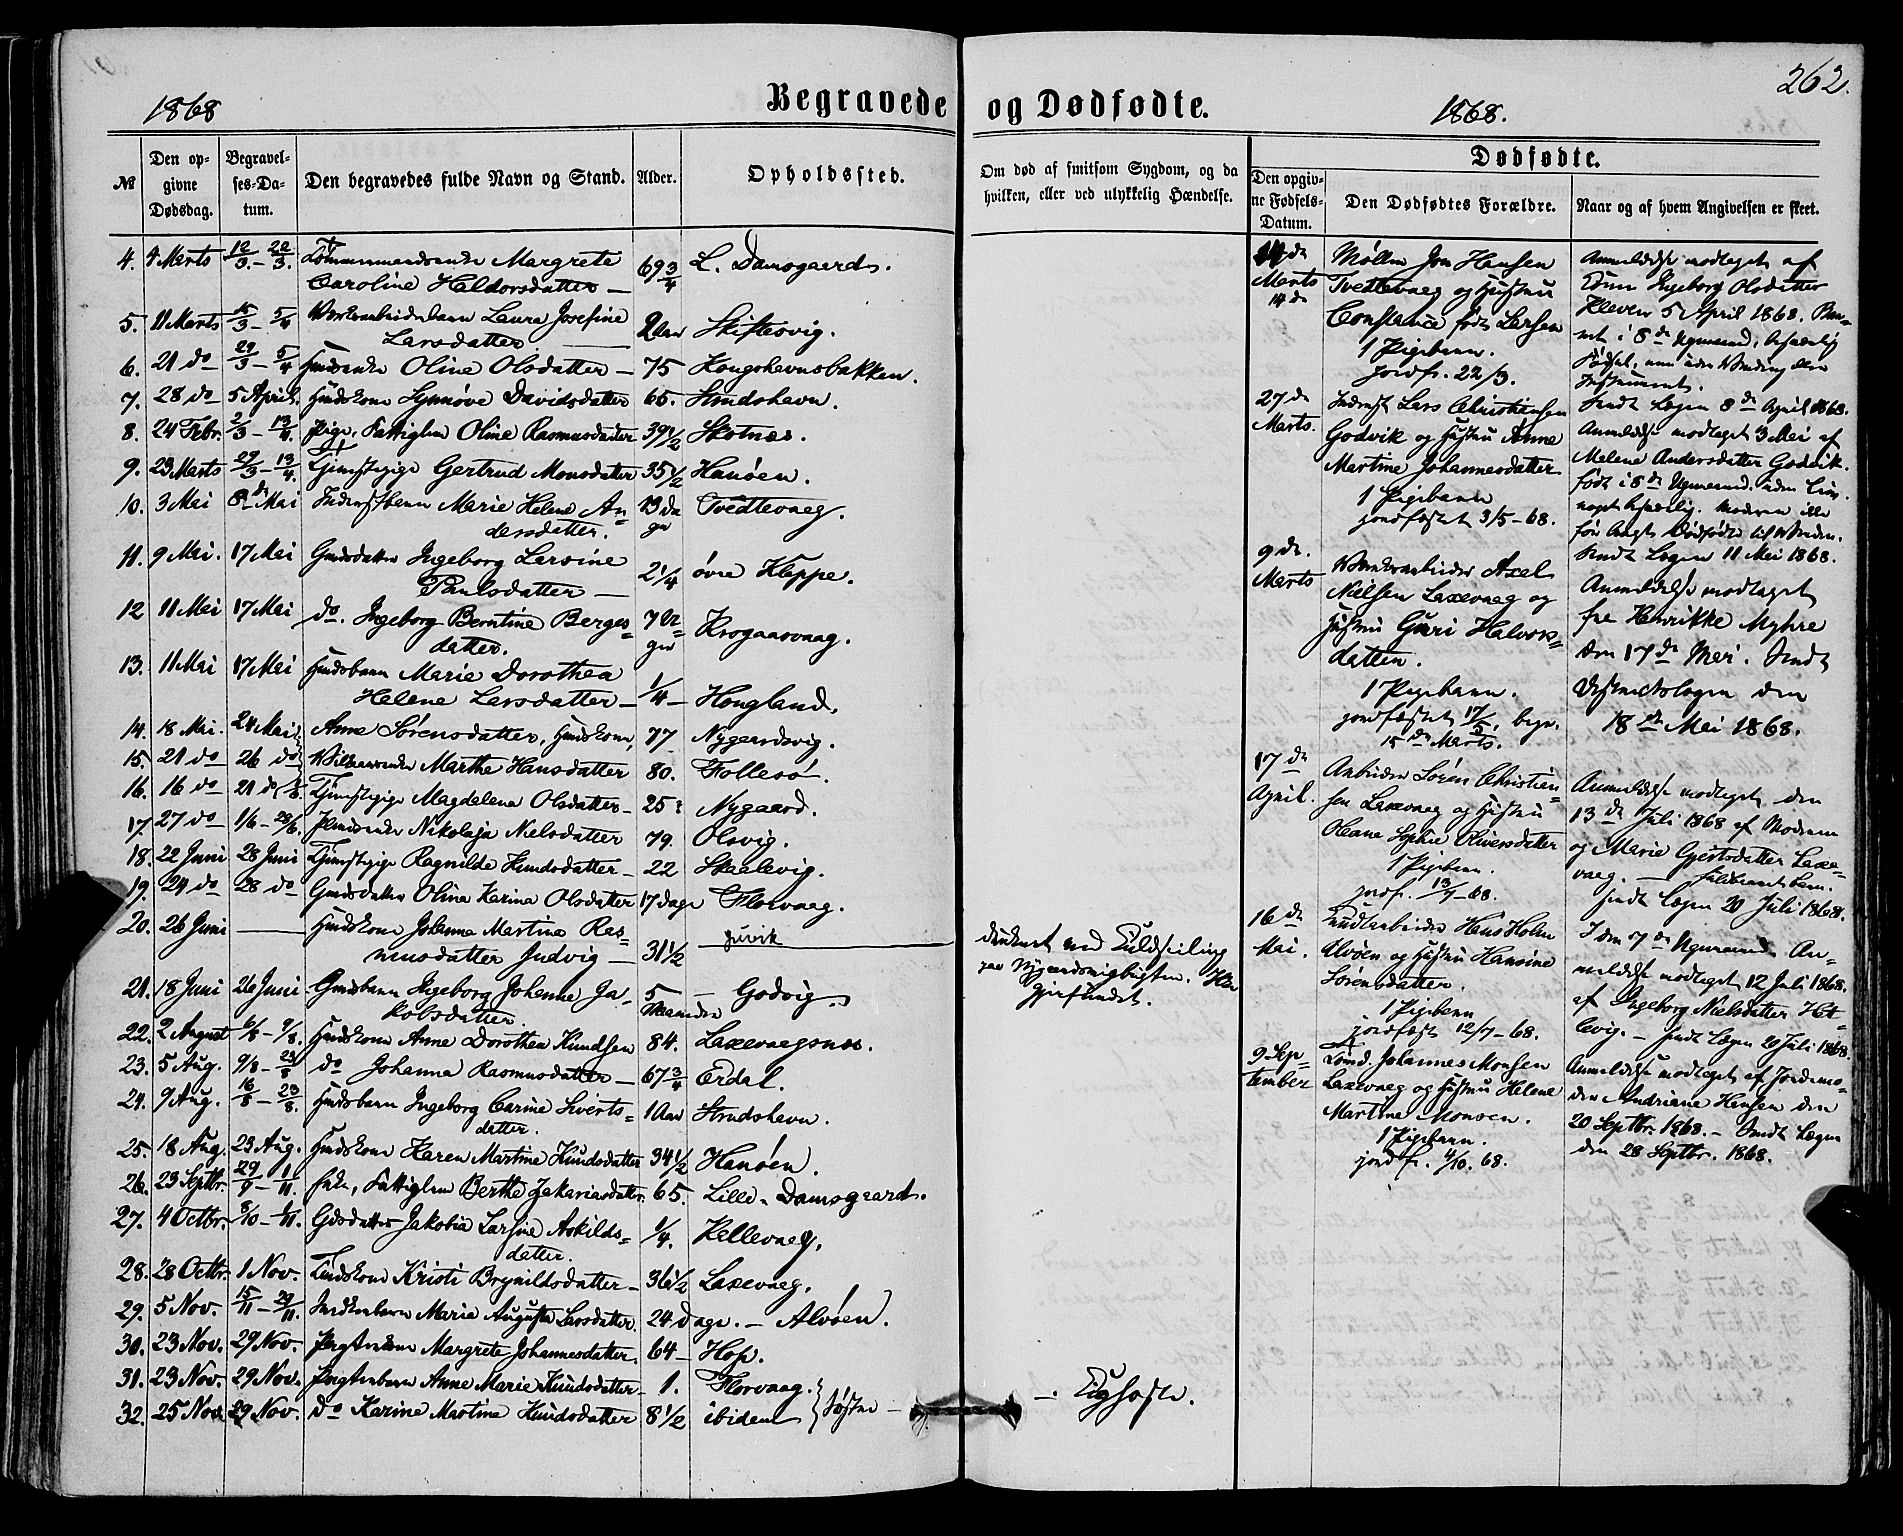 262.
1868
Begravede og Dødfødte.
1868.
№
Den opgivne Dødsdag.
Begravelses-Datum.
Den begravedes fulde Navn og Stand.
Alder.
Opholdssted.
Om død af smitsom Sygdom, og da hvilken, eller ved ulykkelig Hændelse.
Dødfødte.
Den opgivne Fødsels-Datum.
Den Dødfødtes Forældre.
Naar og af hvem Angivelsen er skeet.
4. 4 Marts 12/3 - 22/3. Margrete
Caroline Haldorsdatter — 69 3/4 L. Damsgaard.
5. 11 Marts 15/3 - 5/4 Laura Josefine
Larsdatter. 2 Aar Skiftesvig.
6. 21 do 29/3 - 5/4 Oline Olsdatter — 75 Kongshavnsbakken.
7. 28 do 5 April. Huuskone Synnøve Davidsdatter 65. Strudshavn.
8. 24 Febr. 2/3 - 13/4 Pige, Fattiglem Oline Rasmusdatter 39 1/2 Skotnæs.
9. 23 Marts 29/3 - 13/4. Tjenstepige Gertrud Monsdatter 35 1/2 Hanøen.
10. 3 Mai 8de Mai Inderstbarn Marie Helene An-
dersdatter. 13 Da
ge Tvedtevaag.
11. 9 Mai. 17 Mai Gmdsdatter Ingeborg Larsine
Paulsdatter — 2 1/4 øvre Kleppe.
12 11 Mai 17 Mai do. Ingeborg Berntine Berges-
datter. 7 Uger Krogaasvaag.
13. 11 Mai 17 Mai Huusbarn Marie Dorothea
Helene Larsdatter — 1/4 — Hougland.
14. 18 Mai. 24 Mai Anne Sørensdatter, Huuskone, 77 Nygaardsvig.
15. 21 do 26 do Marthe Hansdatter 80. Follesø.
16. 16 do 21 do Tjenstepige Magdalena Olsdatter 25 Nygaard.
17. 27 do 1/6 - 28/6. Nikolaja Nielsdatter 79. Olsvig.
18. 22 Juni 28 Juni Tjenstepige Ragnilde Knudsdatter — 22 Skaalevig.
19. 24 do 28 do Gmdsdatter Olina Karina Olsdatter 17 dage Florvaag.
20. 26 Juni — Huuskone Johanna Martina Ras-
musdatter Judvig — 31 1/2 Juvik
druknet ved Kuldseiling
paa Nygaardsvigbugten. Ikke
gjenfundet.
21. 18 Juni 26 Juni Gmdsbarn Ingeborg Johanne Ja-
kobsdatter. 5
Maaneder — Godvig.
22. 2 August 6/8 - 9/8. Huuskone Anne Dorothea Knudsen 84. Laxevaagsnæs.
23. 5 Aug. 9/8 - 23/8 do Johanna Rasmusdatter — 67 3/4 Erdal.
24. 9 Aug. 16/8 - 23/8. Huusbarn Ingeborg Carine Siverts-
datter. 1 Aar Strudshavn.
25. 18 Aug. 23 Aug. Huuskone Karen Martine Knudsdatter 34 1/2 Hanøen.
26. 23 Septbr. 29/9 - 1/11. Enke, Fattiglem Berthe Zakariasdatter. 65. Lille-Damsgaard.
27. 4 Octbr. 8/10 - 1/11. Gdsdatter Jakobia Larsine Askilds-
datter. 1/4. Pallevaag.
28. 28 Octbr. 1 Nov. Kristi Brynildsdatter — 36 1/2 Laxevaag.
29. 5 Nov. 15/11 - 29/11. Marie Augusta Larsdatter. 24 Dage. — Alvøen.
30. 23 Nov. 29 Nov. Pagterkone Margrete Johannesdatter. 64 — Hop.
31. 23 Nov. 29 Nov. Pagterbarn Anne Marie Knudsdatter — 1. Florvaag.
32. 25 Nov. 29 Nov. do Karine Martine Knudsdatter 8 1/2 ibidem Søstre — Kighoste.
14de
Marts
14de
Møller Jon Hansen
Tvedtevaag og Hustru
Constance født Larsen
1 Pigebarn.
jordf. 22/3.
Anmeldelse modtaget af
Ingeborg Olsdatter
Kleven 5 April 1868. Bar-
net i 8de Ugemaaned,
Fødsel, uden Vending eller
Instrument.
Sendt Lægen 8de April 1868.
27de
Marts.
Inderst Lars Christiansen
Godvik og Hustru Anne
Martine Johannesdatter
1 Pigebarn
jordfæstet 3/5 - 68.
Anmeldelse modtaget 3 Mai af
Malene Andersdatter Godvik.
født i 8de Ugemaaned. uden Livs-
Sendt Lægen 11 Mai 1868.
9de.
Marts
Værksarbeider Axel
Nielsen Laxevaag og
Hustru Guri Halvors-
datter.
1 Pigebarn.
jordfæstet 17/5, begr.
15de Marts.
Anmeldelse modtaget
fra Henrikke Myhre
den 17de Mai. Sendt
Districtslægen den
18de Mai 1868.
17de
April.
Arbeider Søren Christian-
sen Laxevaag og Hustru
Oleane Sophie Siversdatter
1 Pigebarn.
jordf. 13/7 - 68.
Anmeldelse modtaget den
13de Juli 1868 af Moderen
og Marie Gjertsdatter Laxe-
vaag. — Fuldbaaret Barn.
Sendt Lægen 20 Juli 1868.
16de
Mai.
Krudtarbeider Hans Holm
Alvøen og Hustru Hansine
Sørensdatter.
1 Pigebarn
jordfæst 12/7 - 68.
I den 7de Ugemaaned. An-
meldelse modtaget 12 Juli 1868.
af Ingeborg Nielsdatter Het-
levig. — Sendt Lægen 20 Juli 1868.
9 Sep-
tember
Johannes Monsen
Laxevaag og Hustru Helene
Martine Monsen.
1 Pigebarn.
jordf. 4/10. 68.
Anmeldelse modtaget af Jordemo-
der Andriane Hansen den
20 Septbr. 1868. — Sendt Lægen
den 28 Septbr. 1868.